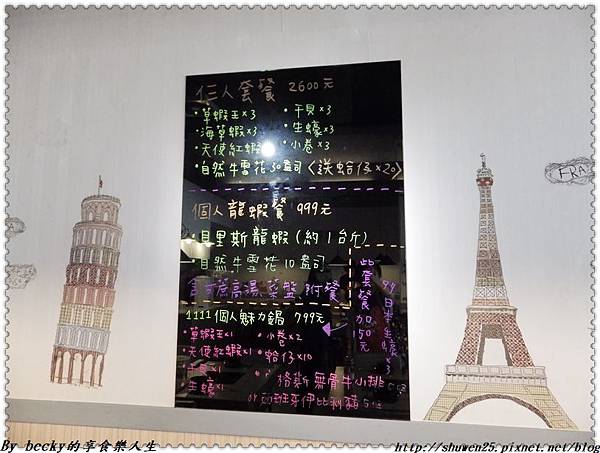 仨人套餐 2600元
•草蝦王×3 •干貝×3
•海草蝦×3 •生蠔×3
•天使紅蝦 •小卷×3
•自然牛雪花30盎司〈送蛤仔×20〉
個人龍蝦餐 999元
•貝里斯龍蝦(約1台斤)
•自然牛雪花10盎司
高湯.菜盤.附餐
此套餐加50元
99日本生蠔×3
1111個人魅力鍋 799元
草蝦王×1 •小卷×2
•天使紅蝦×1 •蛤仔×10
生蠔×1
格斯無骨牛小排
or西班牙伊比利豬
FRA
By becky的享食樂人生
http://shuwen25.pixnet.net/blog